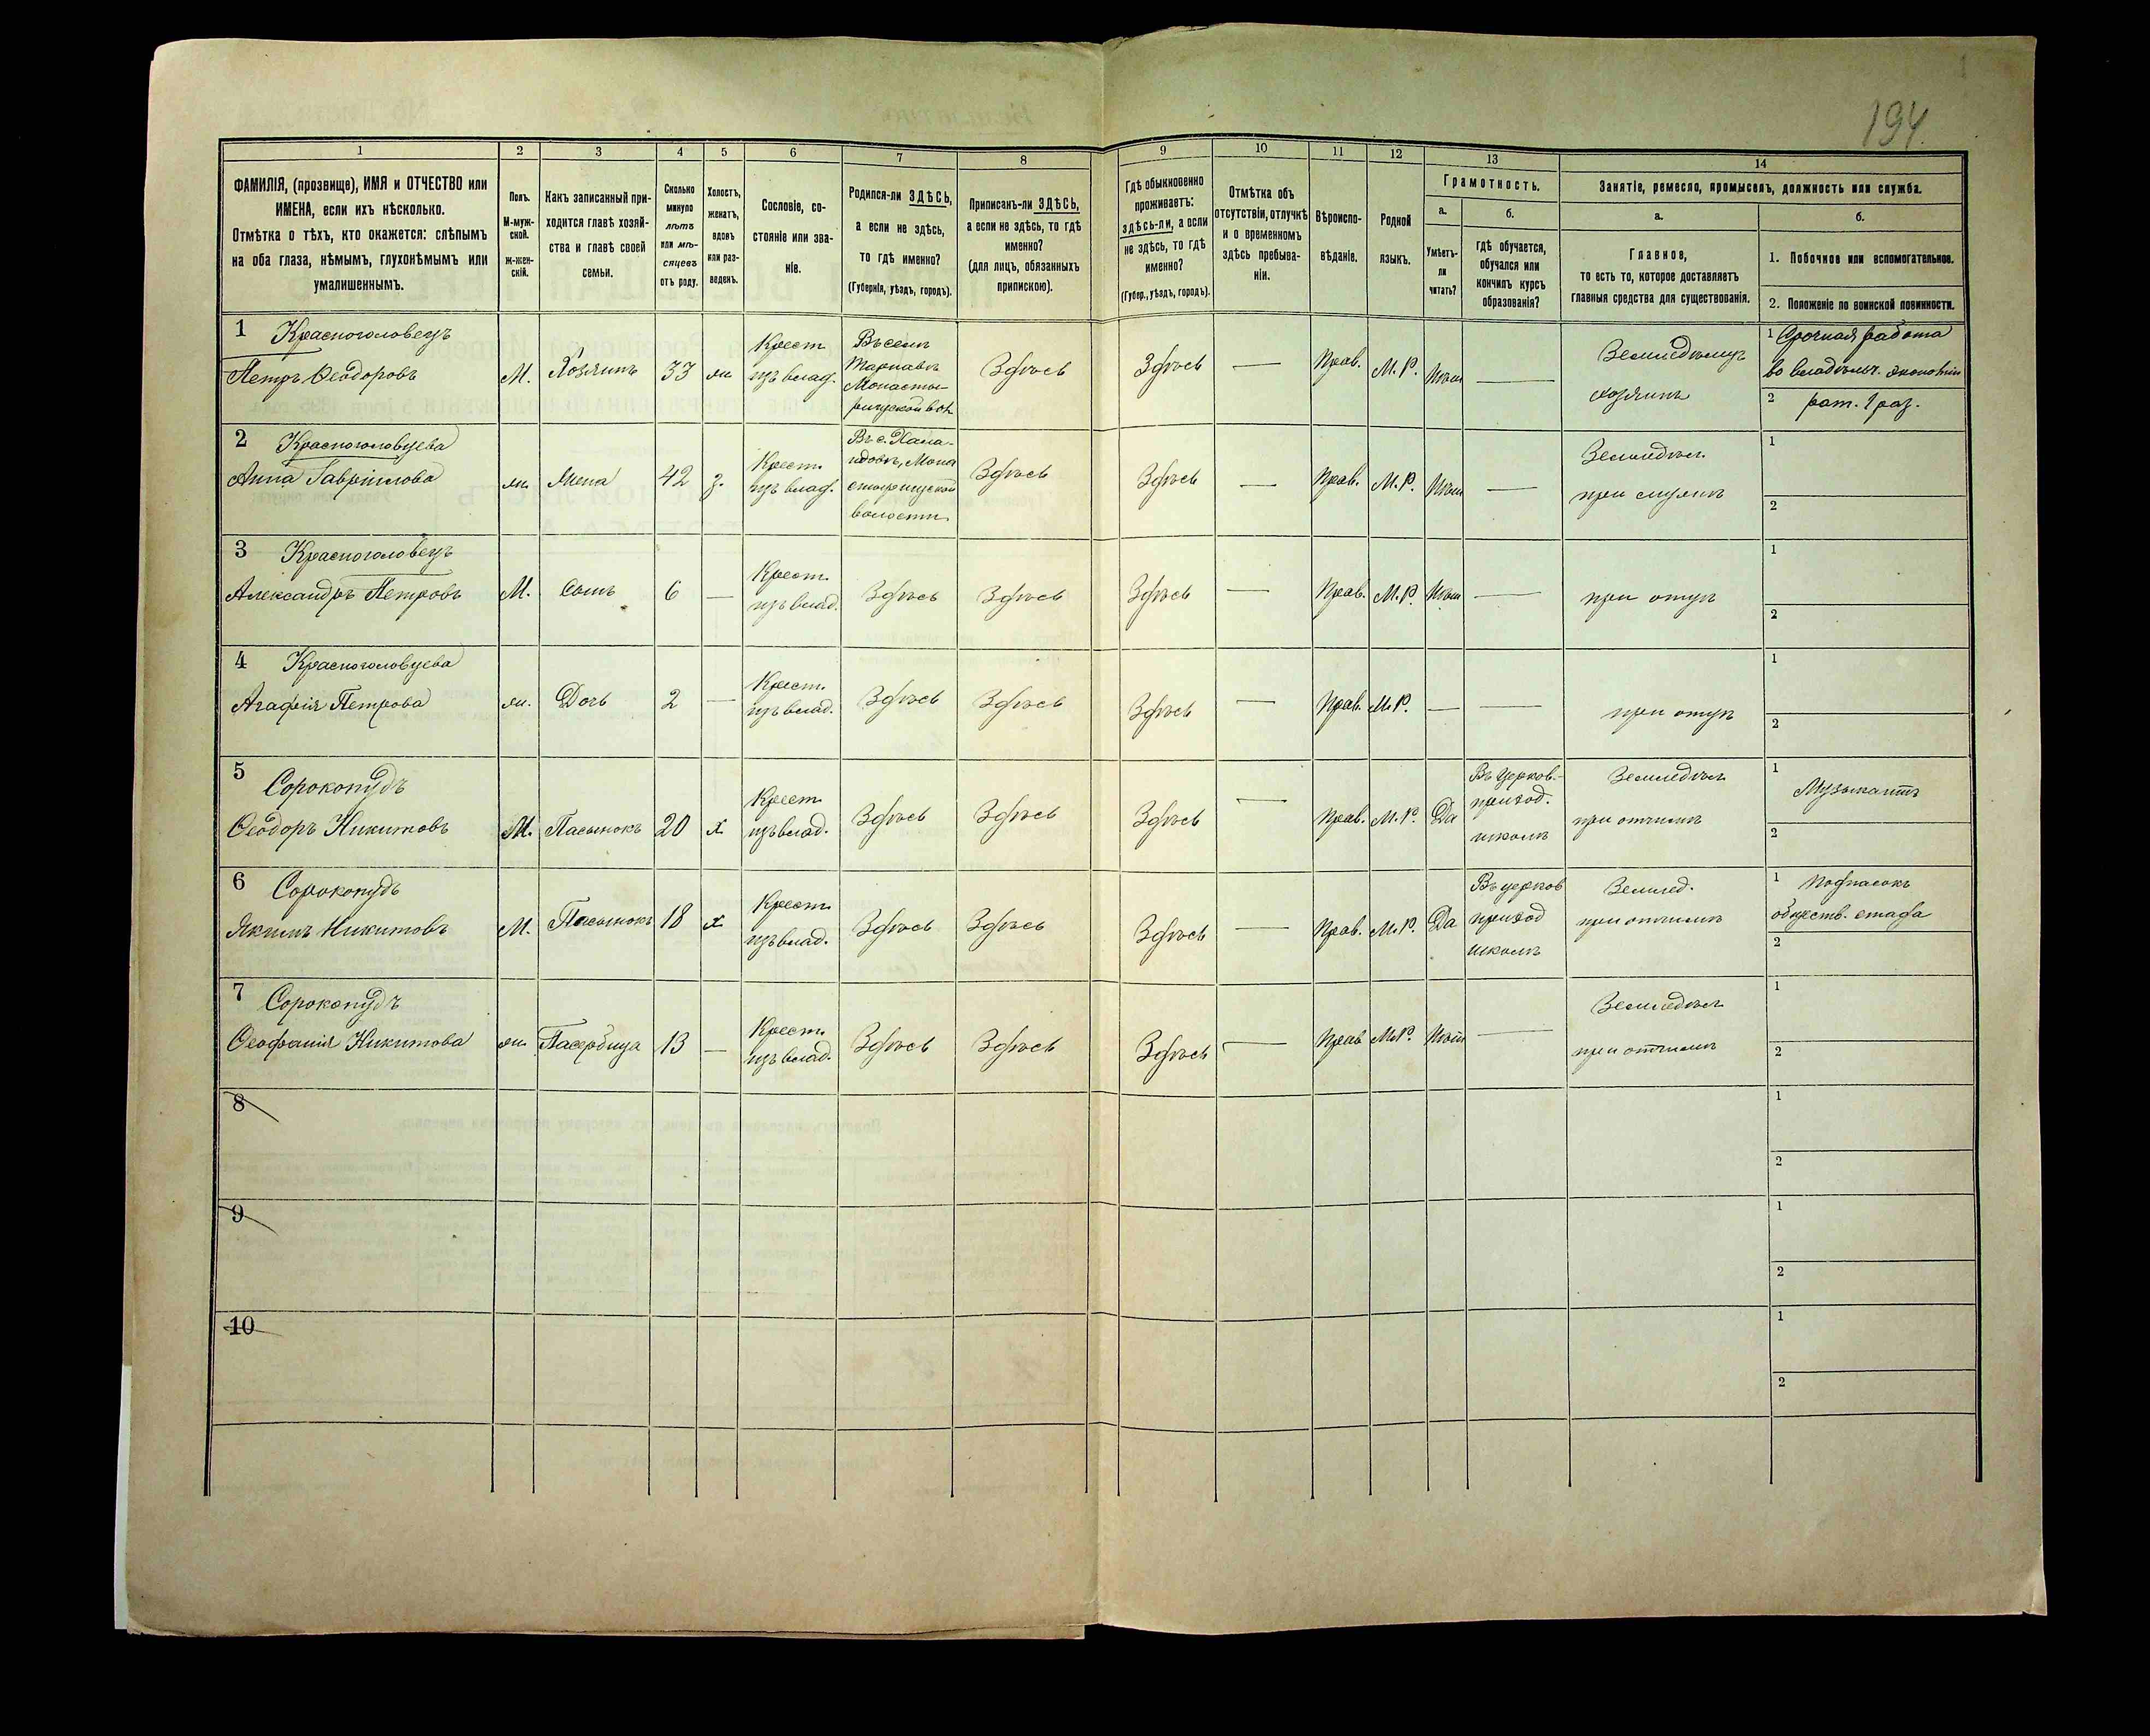 194.
1 2 3 4 5 6 7 8 9 10 11 12 13 14
ФАМИЛІЯ, (прозвище), ИМЯ и ОТЧЕСТВО или
ИМЕНА, если ихъ нѣсколько.
Отмѣтка о тѣхъ, кто окажется: слѣпымъ
на оба глаза, нѣмымъ, глухонѣмымъ или
умалишеннымъ.
Полъ.
М-муж-
ской.
Ж-жен-
скій.
Какъ записанный при-
ходится главѣ хозяй-
ства и главѣ своей
семьи.
Сколько
минуло
лѣтъ
или мѣ-
сяцевъ
отъ роду.
Холостъ,
женатъ,
вдовъ
или раз-
веденъ.
Сословіе, со-
стояніе или зва-
ніе.
Родился-ли ЗДѢСЬ,
а если не здѣсь,
то гдѣ именно?
(Губернія, уѣздъ, городъ).
Приписанъ-ли ЗДѢСЬ,
а если не здѣсь, то гдѣ
именно?
(для лицъ, обязанныхъ
припискою).
Гдѣ обыкновенно
проживаетъ:
здѣсь-ли, а если
не здѣсь, то гдѣ
именно?
(Губер., уѣздъ, городъ).
Отмѣтка объ
отсутствіи, отлучкѣ
и о временномъ
здѣсь пребыва-
ніи.
Вѣроиспо-
вѣданіе.
Родной
языкъ.
Грамотность.
а.
Умѣетъ-
ли
читать?
б.
гдѣ обучается,
обучался или
кончилъ курсъ
образованія?
Занятіе, ремесло, промыселъ, должность или служба.
а.
Главное,
то есть то, которое доставляетъ
главныя средства для существованія.
б.
1. Побочное или вспомогательное.
2. Положеніе по воинской повинности.
1 Красноголовецъ
Петръ Ѳеодоровъ
М.
Хозяинъ
33
ж.
Крест.
изъ влад.
Въ селѣ
Тарнавѣ
Монасты-
рищской вол.
Здѣсь
Здѣсь
—
Прав.
М. Р.
Нѣтъ
—
Земледѣлецъ
хозяинъ
1 Срочная работа
во владѣльч. экономіи
2 рат. 1 раз.
2 Красноголовцева
Анна Гаврiилова
ж.
Жена
42
з.
Крест.
изъ влад.
волости
Здѣсь
Здѣсь
—
Прав.
М. Р.
Нѣтъ
—
Земледѣл.
при мужѣ
1
2
3 Красноголовецъ
Александръ Петровъ
М.
Сынъ
6
—
Крест.
изъ влад.
Здѣсь
Здѣсь
Здѣсь
—
Прав.
М. Р.
Нѣтъ
—
при отцѣ
1
2
4 Красноголовцева
Агафія Петрова
ж.
Дочь
2
—
Крест.
изъ влад.
Здѣсь
Здѣсь
Здѣсь
—
Прав.
М. Р.
—
—
при отцѣ
1
2
5 Сорокопудъ
Ѳеодоръ Никитовъ
М.
Пасынокъ
20
х.
Крест.
изъ влад.
Здѣсь
Здѣсь
Здѣсь
—
Прав.
М. Р.
Да
Въ церков.-
приход.
школѣ
Земледѣл.
при отчимѣ
1 Музыкантъ
2
6 Сорокопудъ
Якимъ Никитовъ
М.
Пасынокъ
18
х.
Крест.
изъ влад.
Здѣсь
Здѣсь
Здѣсь
—
Прав.
М. Р.
Да
Въ церков
приход
школѣ
Землед.
при отчимѣ
1 Подпасокъ
обществ. стада
2
7 Сорокопудъ
Ѳеофанія Никитова
ж.
Пасербица
13
—
Крест.
изъ влад.
Здѣсь
Здѣсь
Здѣсь
—
Прав
М. Р.
Нѣтъ
—
Земледѣл
при отчимѣ
1
2
8
1
2
9
1
2
10
1
2